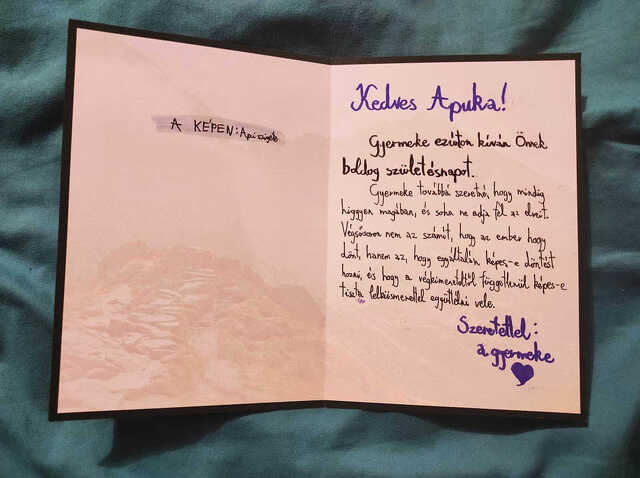 A KÉPEN: Api
Kedves Apuka!
Gyermeke ezúton kíván Önnek
boldog születésnapot.
Gyermeke továbbá szeretné, hogy mindig
higgyen magában, és soha ne adja fel az elveit.
Végsősoron nem az számít, hogy az ember hogy
dönt, hanem az, hogy egyáltalán képes-e döntést
hozni, és hogy a végkimeneteltől függetlenül képes-e
tiszta lelkiismerettel együttélni vele.
Szeretettel:
a gyermeke